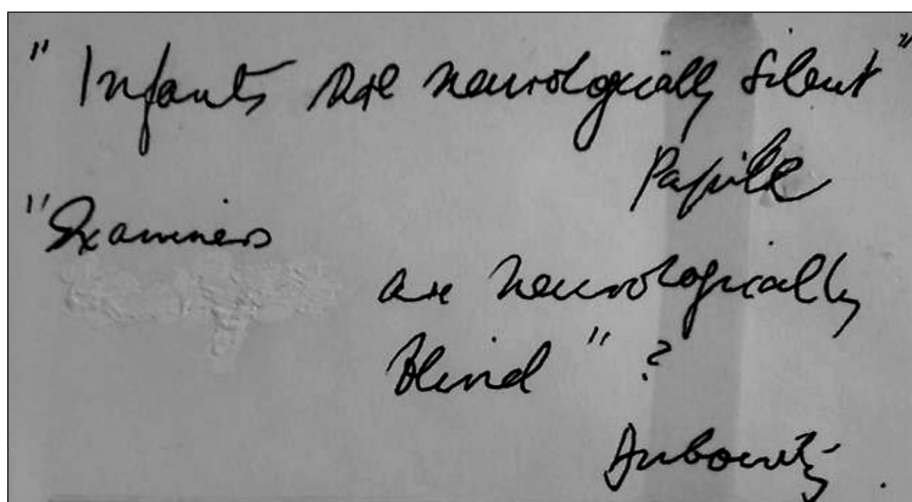 "Infants are neurologically silent"
Papile
"Examiners
are neurologically
blind" ?
Dubowitz